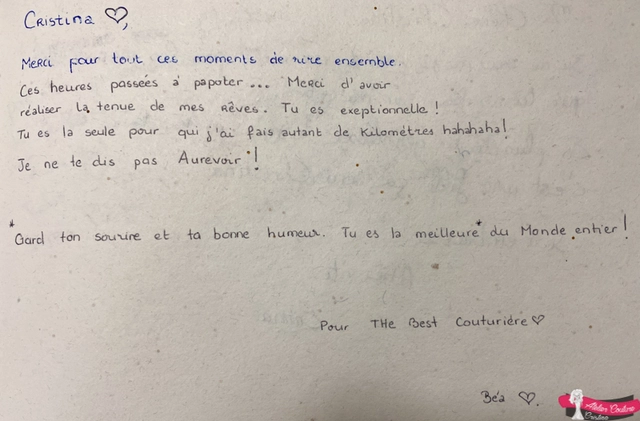 Cristina ♡,
Merci pour tout ces moments de rire ensemble.
Ces heures passées à papoter... Merci d'avoir
réaliser la tenue de mes Rêves. Tu es exeptionnelle !
Tu es la seule pour qui j'ai fais autant de Kilomètres hahahaha!
Je ne te dis pas Aurevoir !
*Gard ton sourire et ta bonne humeur. Tu es la meilleure* du Monde entier !
Pour THe Best Couturière ♡
Béa ♡.
Atelier Couture